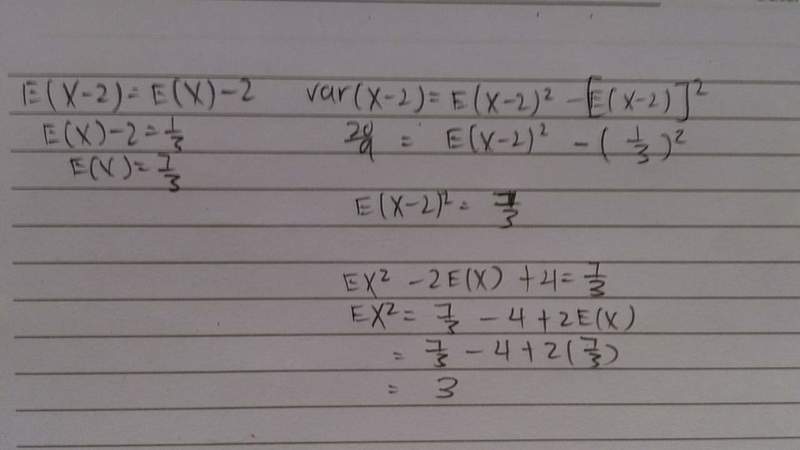 E(X-2) = E(X) - 2
E(X) - 2 = 1/3
E(X) = 7/3
var(X-2) = E(X-2)² - [E(X-2)]²
20/9 = E(X-2)² - (1/3)²
E(X-2)² = 7/3
EX² - 2E(X) + 4 = 7/3
EX² = 7/3 - 4 + 2E(X)
= 7/3 - 4 + 2(7/3)
= 3